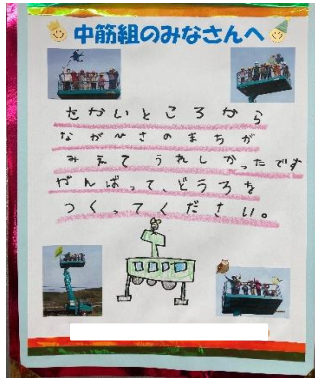 中筋組のみなさんへ
たかいところから
ながひさのまちが
みえてうれしかったです
がんばって、どうろを
つくってください。